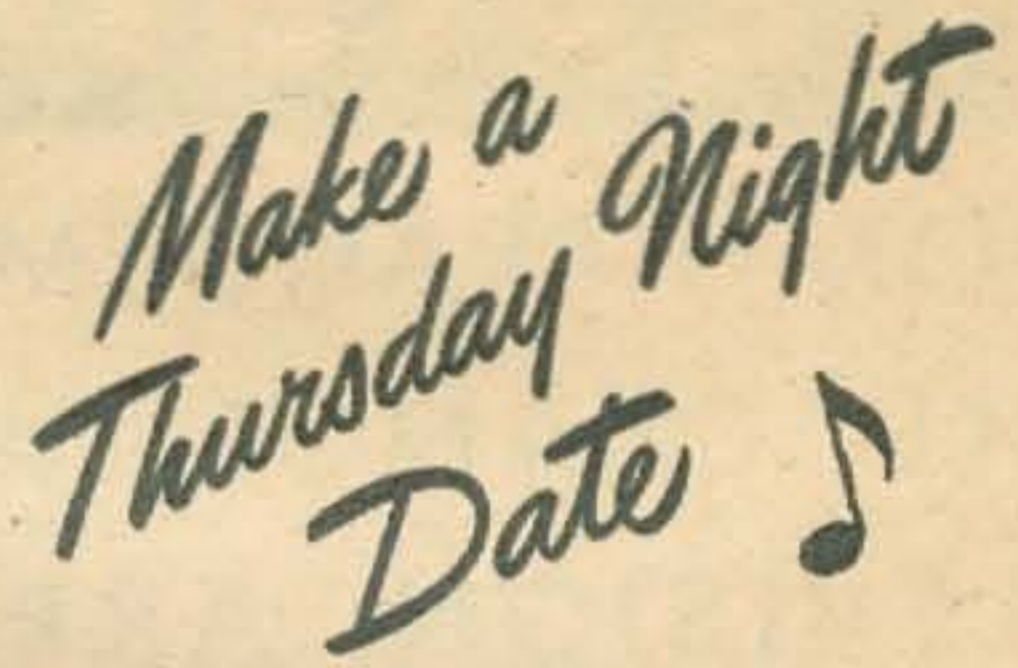 Make a
Thursday Night
Date